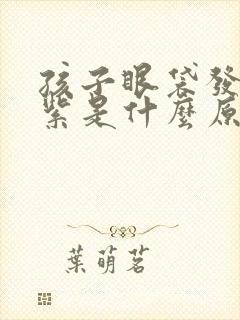 孩子眼袋發
紫是什麼原
葉萌茗